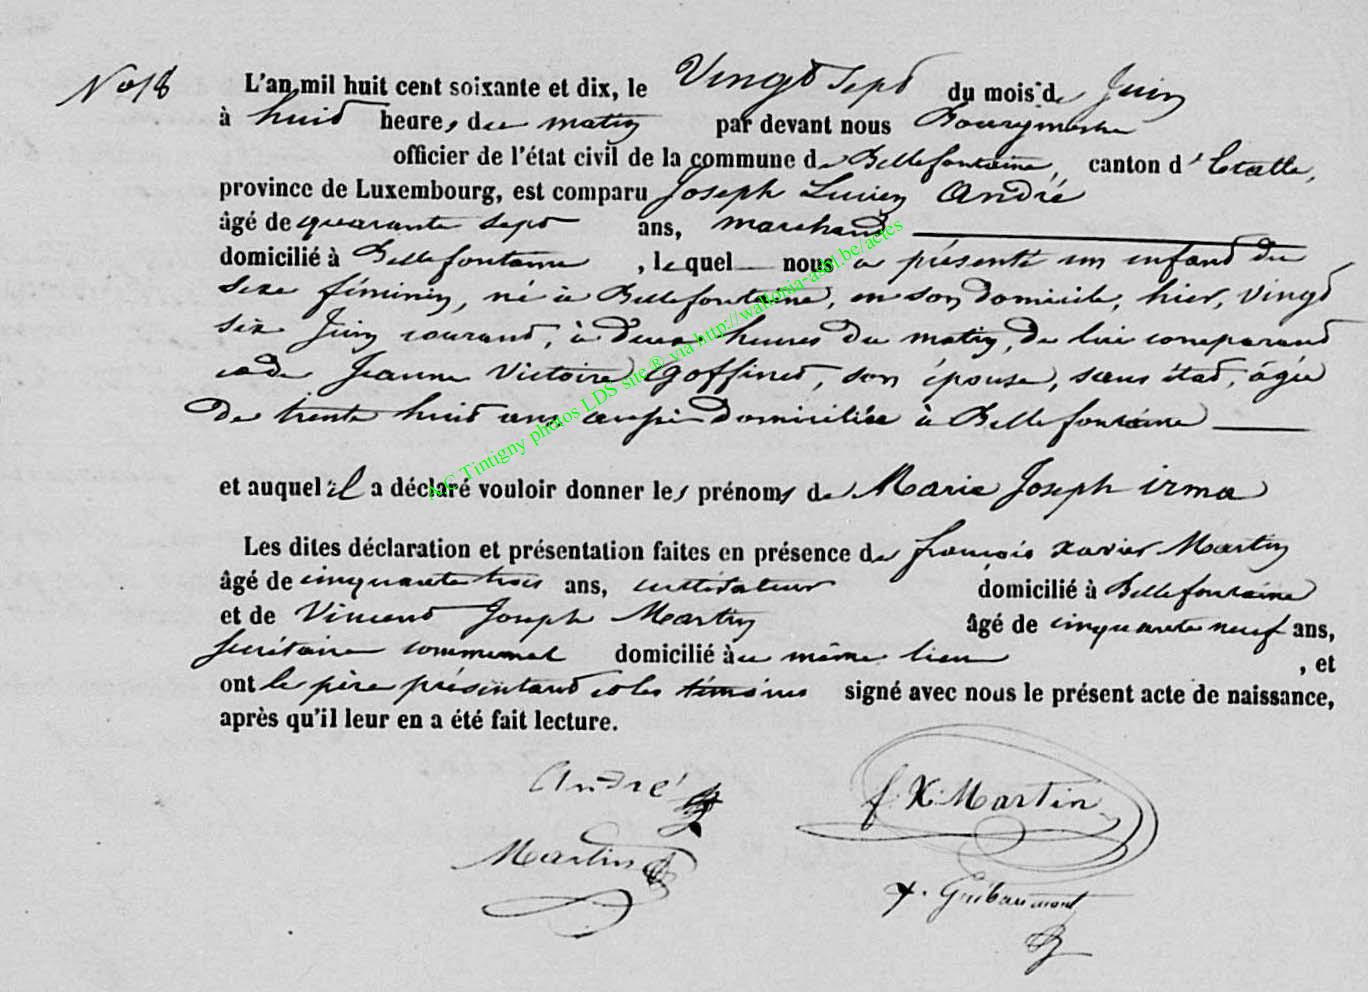 No 18
L'an mil huit cent soixante et dix, le Vingt sept du mois de Juin
à huit heures du matin par devant nous Bourgmestre
officier de l'état civil de la commune de Bellefontaine, canton d'Etalle,
province de Luxembourg, est comparu Joseph Lucien André
âgé de quarante sept ans, marchand
domicilié à Bellefontaine, lequel nous a présenté un enfant du
sexe féminin, né à Bellefontaine, en son domicile, hier, vingt
six Juin courant, à deux heures du matin, de lui comparant
et de Jeanne Victoire Goffinet, son épouse, sans état, âgée
de trente huit ans aussi domiciliée à Bellefontaine
et auquel il a déclaré vouloir donner les prénoms de Marie Joseph irma
Les dites déclaration et présentation faites en présence de françois xavier Martin
âgé de cinquante trois ans, cultivateur domicilié à Bellefontaine
et de Vincent Joseph Martin âgé de cinquante neuf ans,
secrétaire communal domicilié au même lieu, et
ont le père présentant et les témoins signé avec nous le présent acte de naissance,
après qu'il leur en a été fait lecture.
André
f. X. Martin
Martin
A.C Tintigny photos LDS site ® via http://wallonia-asbl.be/actes